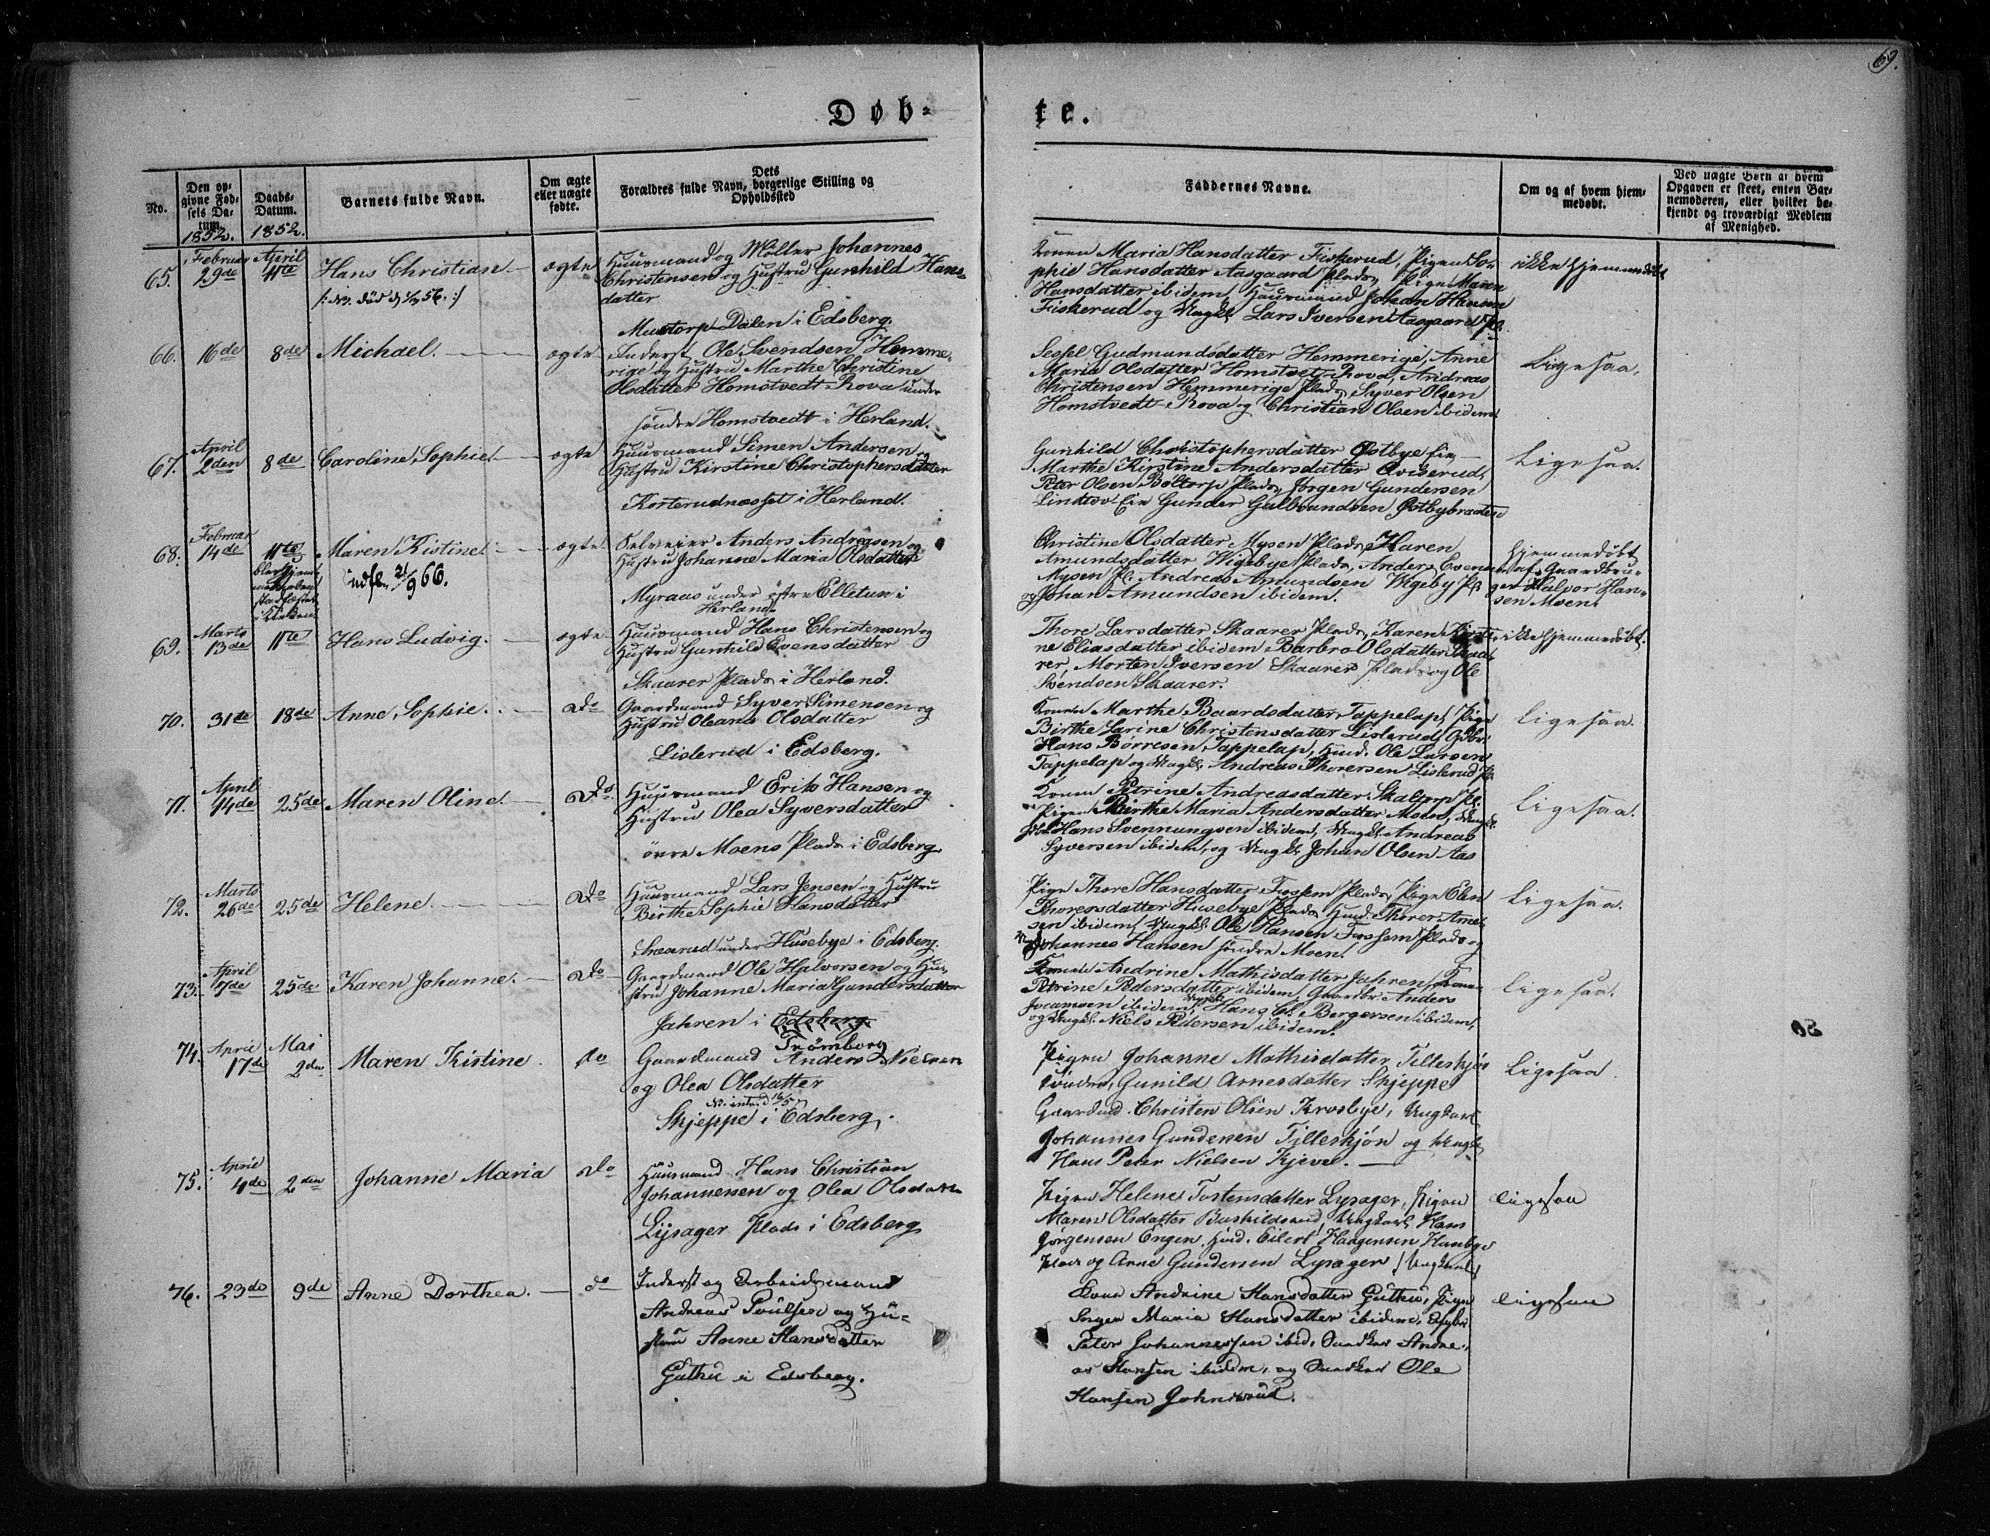 69.
Døb-
te.
No.
Den op-
givne Fød-
sels Da-
tum.
1852.
Daabs-
Datum.
1852.
Barnets fulde Navn.
Om ægte
eller uægte
fødte.
Dets
Forældres fulde Navn, borgerlige Stilling og
Opholdssted
Faddernes Navne.
Om og af hvem hjem-
medøbt.
Ved uægte Børn af hvem
Opgaven er skeet, enten Bar-
nemoderen, eller hvilket be-
kjendt og troværdigt Medlem
af Menighed.
65.
Februar
29de
April
11te
Hans Christian
ægte
Huusmand og Møller Johannes
Christensen og Hustru Gunhild Hans-
datter
Mustorp Dalen i Edsberg.
Konen Maria Hansdatter Fiskerud, Pigen So-
phie Hansdatter Aasgaard Plads, Pige Maren
Hansdatter ibidem, Huusmand Johan Hansen
Fiskerud og Ungkl. Lars Iversen Aasgaard Pl.
ikke hjemmedøbt
66.
16de
8de
Michael.
ægte
Inderst Ole Svendsen Hemme-
rige og Hustru Marthe Christine
Olsdatter Homstvedt-Rova under
søndre Homstvedt i Herland.
Sessel Gudmundsdatter Hemmerige, Anne
Maria Olsdatter Homstvet-Rova, Andreas
Christensen Hemmerige Plads, Syver Olsen
Homstvedt-Rova og Christian Olsen ibidem
Ligesaa.
67.
April
2den
8de
Caroline Sophie
ægte
Huusmand Simen Andersen og
Hustru Kirstine Christophersdatter
Korterudnæsset i Herland.
Gunhild Christophersdatter Østbye Eie
Marthe Kirstine Andersdatter Qviserud,
Peter Olsen Boltorp Plads, Jørgen Gundersen
Lindtov Eie Gunder Gulbrandsen Østbybraaten
Ligesaa.
68.
Februar
14de
11te
Maren Kistine
Indfl. 21/9 66.
ægte
Selveier Anders Andreasen og
Hustru Johanne Maria Olsdatter
Myraas under østre Elletun i
Herland.
Christine Olsdatter Mysen Plads, Karen
Amundsdatter Wigebye Plads, Anders Evensen
Mysen Pl. Andreas Amundsen Wigeby Pl.
og Johan Amundsen ibidem.
Hjemmedøbt
af Gaardbru-
ger Halvor Han-
sen Moen.
69.
Marts
13de
11te
Hans Ludvig.
ægte
Huusmand Hans Christensen og
Hustru Gunhild Evensdatter
Skaarer Plads i Herland.
Thore Larsdatter Skaarer Plads, Karen Kirsti-
ne Eliasdatter ibidem Barbro Olsdatter Skaa-
rer, Morten Iversen Skaarer Plads og Ole
Svendsen Skaarer.
ikke hjemmedøbt.
70.
31te
18de
Anne Sophie.
Do
Gaardmand Syver Simensen og
Hustru Oleana Olsdatter
Lislerud i Edsberg.
Konen Marthe Baardsdatter Tappelap, Pige
Birthe Karine Christensdatter Lislerud, Gdbr.
Hans Børresen Tappelap, Hmd. Ole Larsen
Tappelap og Ungkl. Andreas Thoresen Lislerud Pl.
Ligesaa.
71.
April
14de
25de
Maren Oline
Do
Huusmand Erik Hansen og
Hustru Olea Syversdatter
øvre Moens Plads i Edsberg.
Konen Petrine Andreasdatter Skaltorp Pl.
Pigen Birthe Maria Andersdatter Moen, Ungkl.
Hans Svennungsen ibidem, Ungkl. Andreas
Syversen ibidem, og Ungkl. Johan Olsen Aas
Ligesaa.
72.
Marts
26de
25de
Helene.
Do
Huusmand Lars Jensen og Hustru
Birthe Sophie Hansdatter
Skaarud under Husebye i Edsberg.
Pige Thore Hansdatter Fossem Plads, Pige Elen
Thorersdatter Husebye Plads, Hmd. Thorer Arne-
sen ibidem, Ungkl. Ole Hansen Fossem Plads og
Johannes Hansen søndre Moen.
Ligesaa.
73.
April
17de
25de
Karen Johanne.
Do
Gaardmand Ole Halvorsen og Hu-
stru Johanne Maria Gundersdatter
Jahren i Edsberg
Trømborg
Konen Andrine Mathisdatter Jahren, Konen
Petrine Pedersdatter ibidem, Gaardbr. Anders
Jocumsen ibidem, Ungkl. Hans Ch. Bergersen ibidem,
og Ungkl. Niels Pedersen ibidem.
Ligesaa.
74.
April
17de
Mai
2den
Maren Kistine.
do
Gaardmand Anders Nielsen
og Olea Olsdatter
Skjeppe i Edsberg.
Pigen Johanne Mathisdatter Tilleskjøn
søndre, Gunild Arnesdatter Skjeppe
Gaardmd. Christen Olsen Krosbye, Ungkarl
Johannes Gundersen Tilleskjøn og Ungkl.
Hans Peter Nielsen Kjevel.
Ligesaa.
75.
April
4de
2den
Johanne Maria
Do
Huusmand Hans Christian
Johannesen og Olea Olsdatter
Lysager Plads i Edsberg
Pigen Helene Tostensdatter Lysager, Pigen
Maren Olsdatter Buskildsrud, Ungkarl Hans
Jørgensen Engen Hmd. Eilert Haagensen Hambye
Plads og Arne Gundersen Lysager, Ungkarl
ligesaa
76.
23de
9de
Anne Dorthea.
do
Inderst og Arbeidsmand
Andreas Poulsen og Hu-
stru Anne Hansdatter
Guthu i Edsberg.
Kone Andrine Hansdatter Guthu, Pige
Maria Hansdatter ibidem,
Peter Johannessen ibid, Andre-
as Hansen ibidem, og Ole
Hansen Johnsrud.
ligesaa